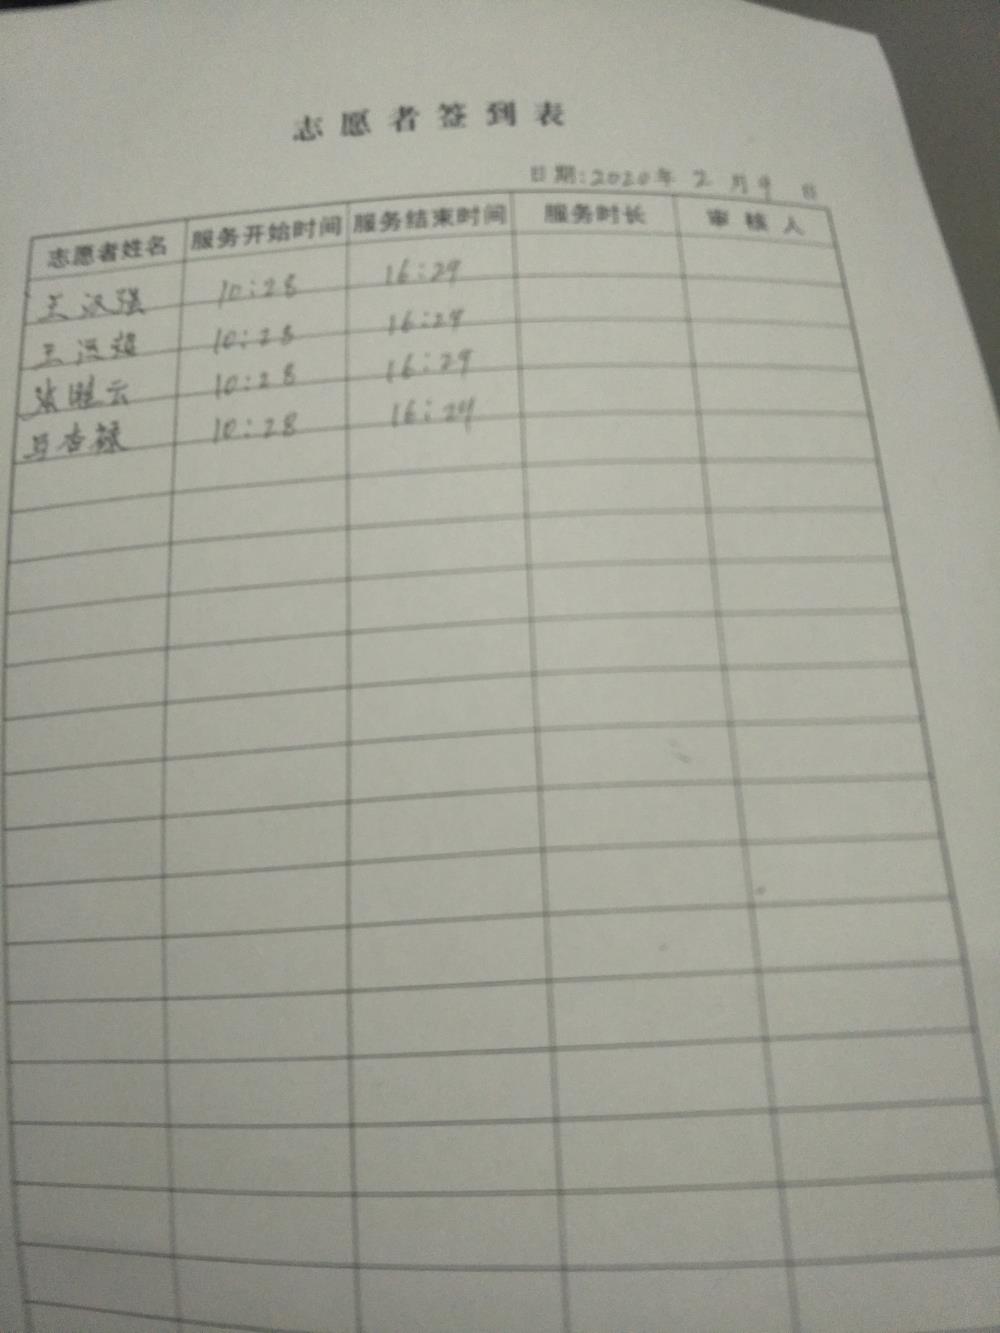 志愿者签到表
日期:2020年 2 月 9 日
志愿者姓名 服务开始时间 服务结束时间 服务时长 审核人
王汉强 10:28 16:29
王洪超 10:28 16:29
10:28 16:29
马杏禄 10:28 16:29